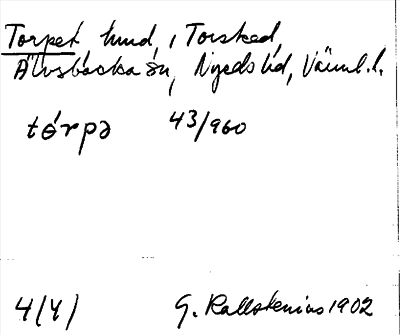 Torpet, hmd, i Torsked,
Älvsbacka sn, Nyeds hd, Värml. l.
tórpə 43/960
4(4) G. Kallstenius 1902